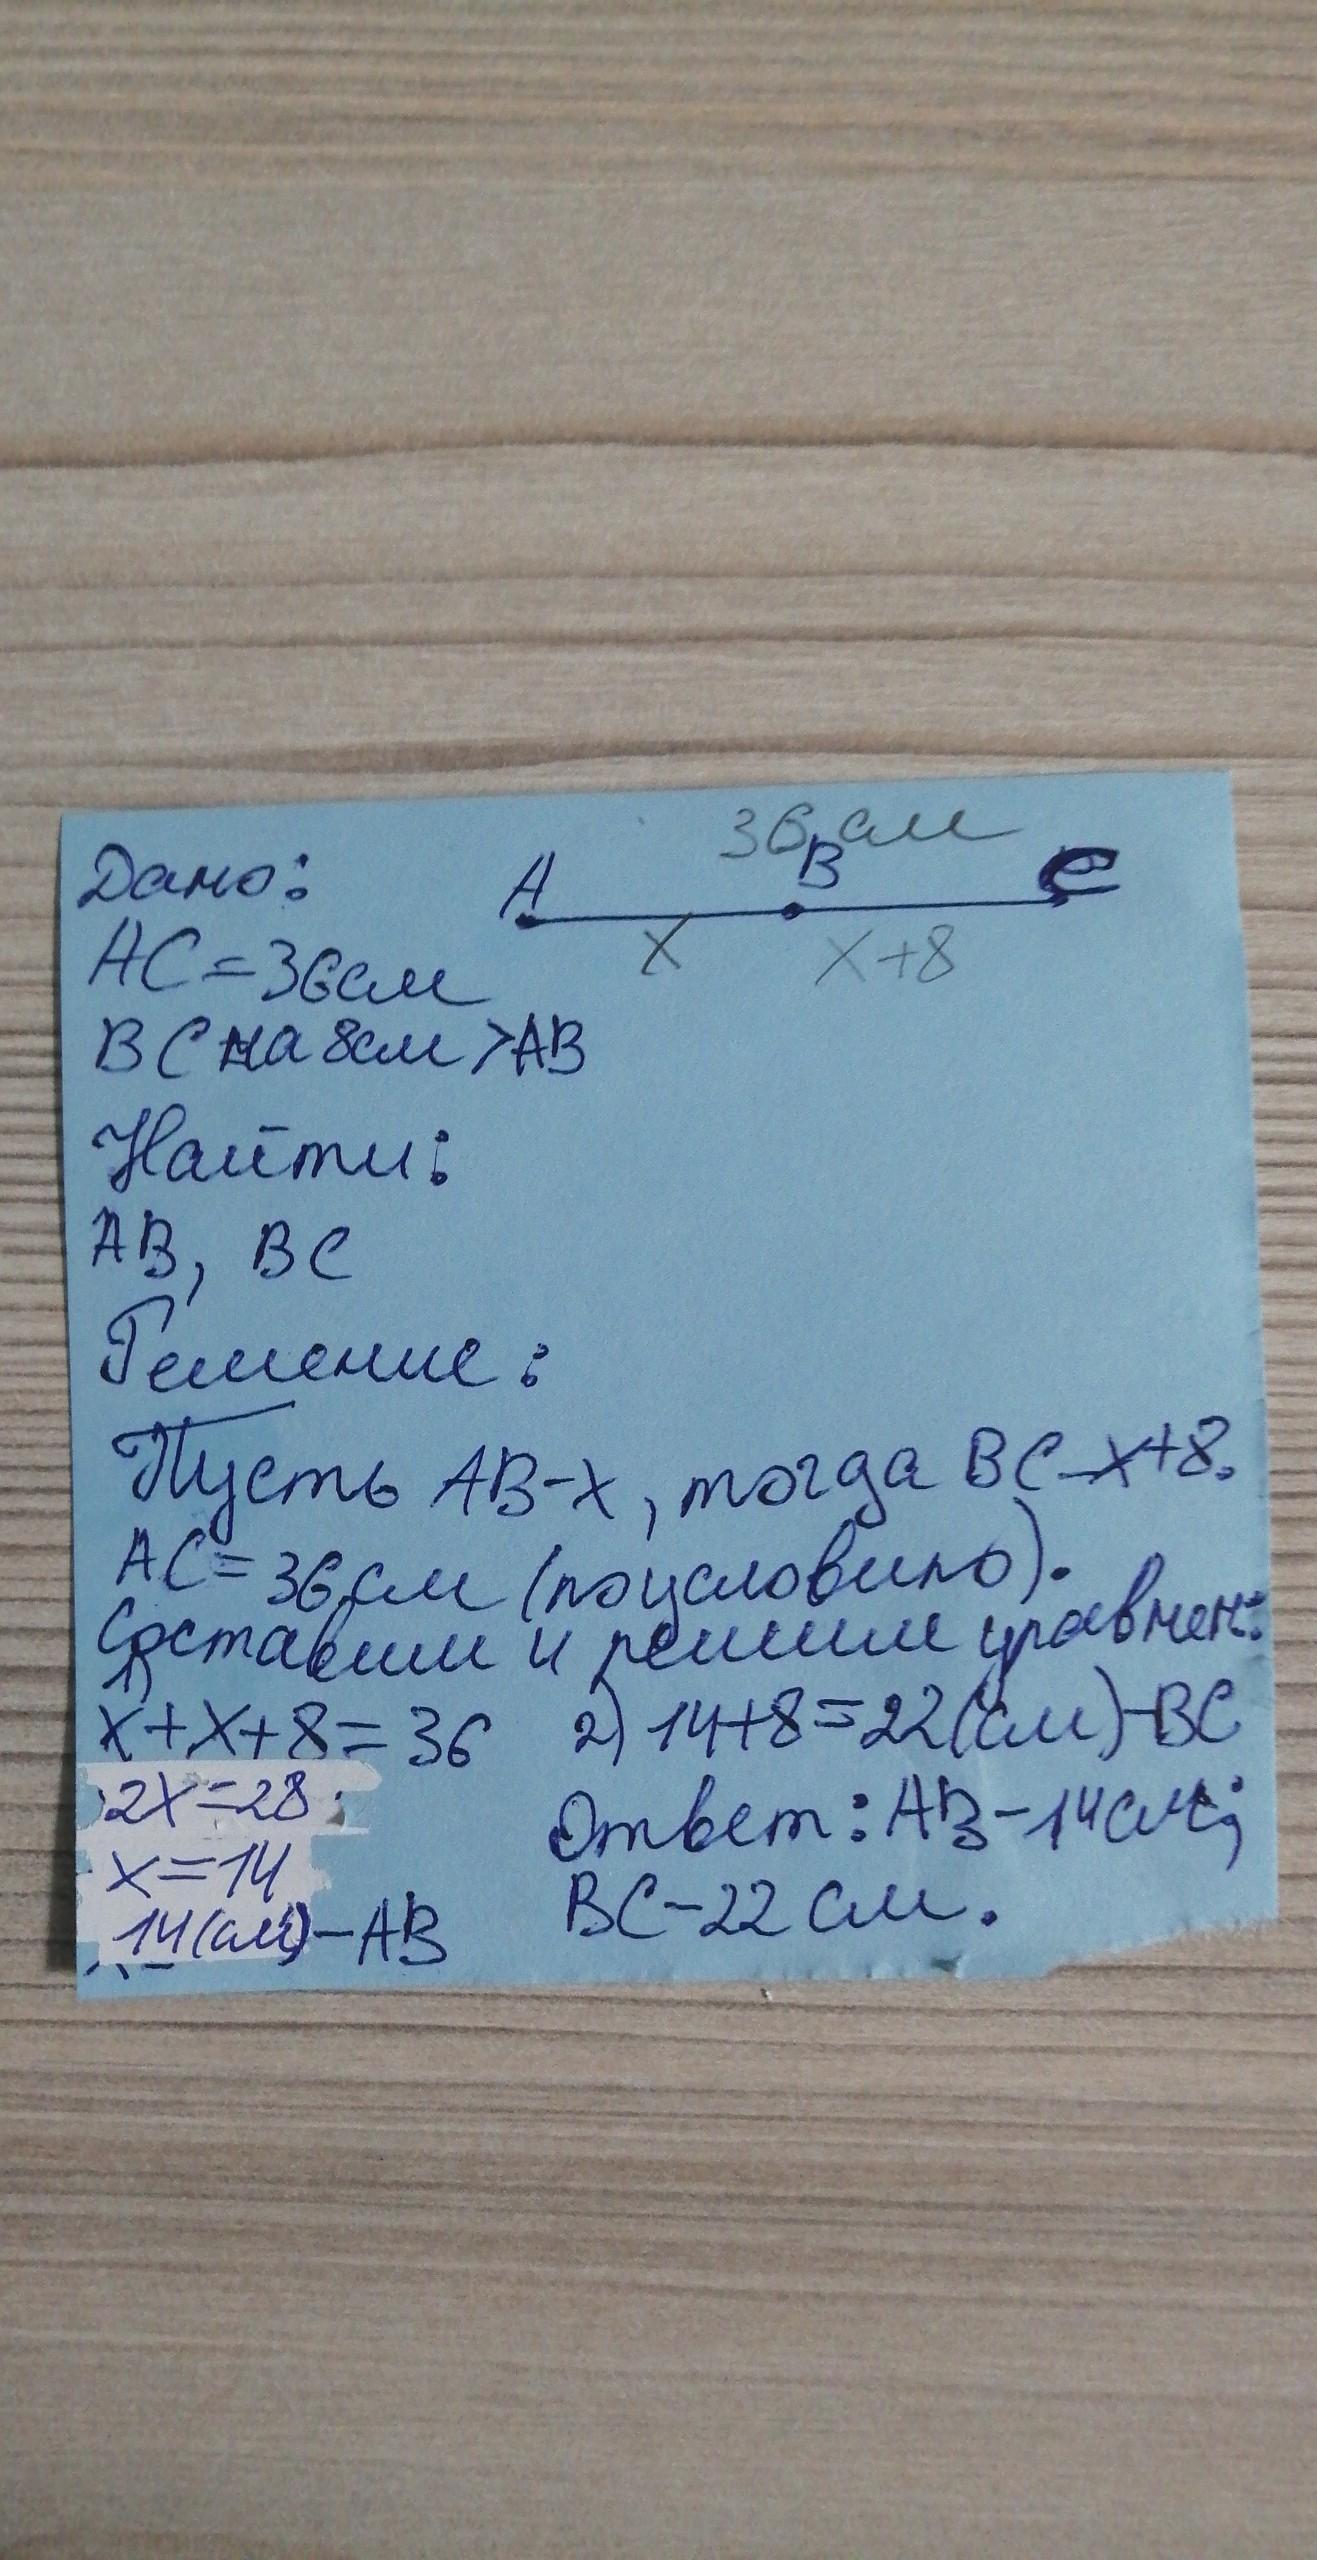 36 см
Дано: A B C
AC=36см x x+8
BC на 8см >AB
Найти:
AB, BC
Решение:
Пусть AB-x, тогда BC-x+8.
AC=36см (поусловию).
Составим и решим уравнен.:
1)
x+x+8=36 2) 14+8=22(см)-BC
2x=28 Ответ: AB-14см;
x=14 BC-22 см.
14(см)-AB